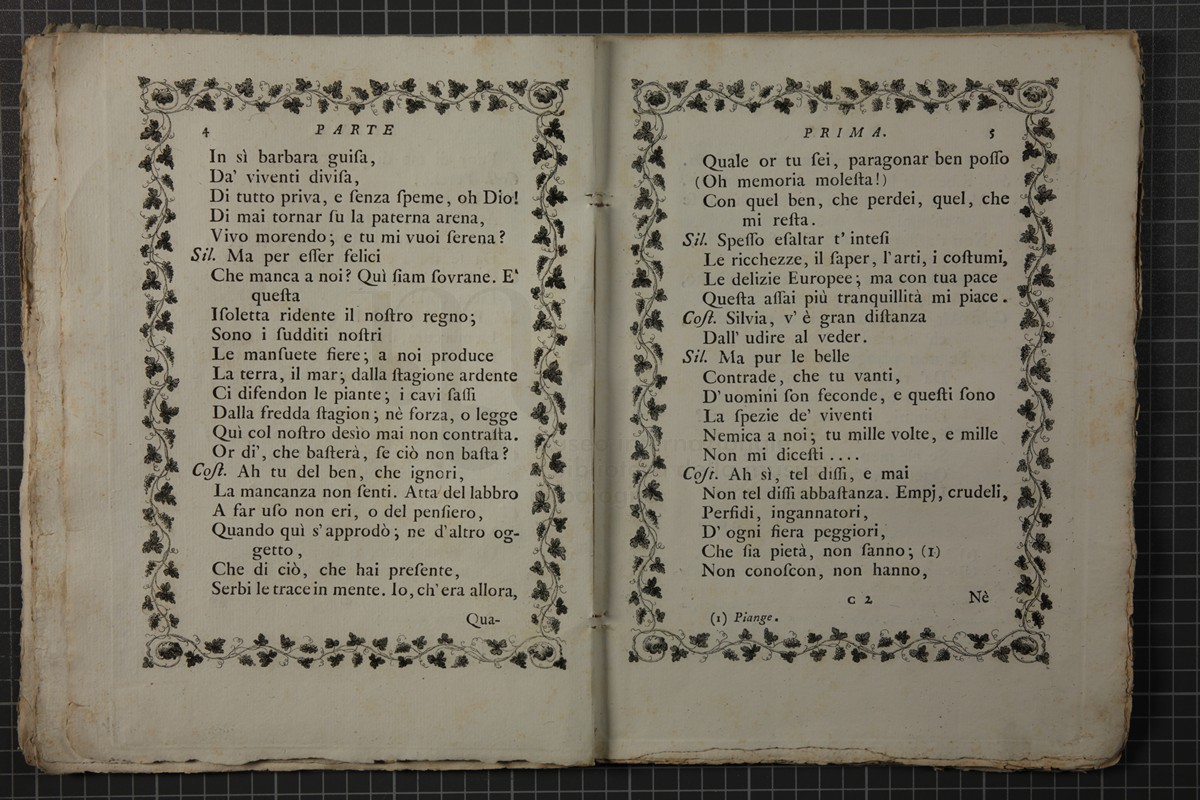 4 PARTE
In sì barbara guiſa,
Da' viventi diviſa,
Di tutto priva, e ſenza ſpeme, oh Dio!
Di mai tornar ſu la paterna arena,
Vivo morendo; e tu mi vuoi ſerena?
Sil. Ma per eſſer felici
Che manca a noi? Quì ſiam ſovrane. E'
queſta
Iſoletta ridente il noſtro regno;
Sono i ſudditi noſtri
Le manſuete fiere; a noi produce
La terra, il mar; dalla ſtagione ardente
Ci difendon le piante; i cavi ſaſſi
Dalla fredda ſtagion; nè forza, o legge
Quì col noſtro desìo mai non contraſta.
Or di', che baſterà, ſe ciò non baſta?
Coſt. Ah tu del ben, che ignori,
La mancanza non ſenti. Atta del labbro
A far uſo non eri, o del penſiero,
Quando quì s'approdò; ne d'altro og-
getto,
Che di ciò, che hai preſente,
Serbi le trace in mente. Io, ch'era allora,
Qua-
PRIMA. 5
Quale or tu ſei, paragonar ben poſſo
(Oh memoria moleſta!)
Con quel ben, che perdei, quel, che
mi reſta.
Sil. Speſſo eſaltar t'inteſi
Le ricchezze, il ſaper, l'arti, i coſtumi,
Le delizie Europee; ma con tua pace
Queſta aſſai più tranquillità mi piace.
Coſt. Silvia, v'è gran diſtanza
Dall' udire al veder.
Sil. Ma pur le belle
Contrade, che tu vanti,
D'uomini ſon feconde, e queſti ſono
La ſpezie de' viventi
Nemica a noi; tu mille volte, e mille
Non mi diceſti ....
Coſt. Ah sì, tel diſſi, e mai
Non tel diſſi abbaſtanza. Empj, crudeli,
Perfidi, ingannatori,
D' ogni fiera peggiori,
Che ſia pietà, non ſanno; (1)
Non conoſcon, non hanno,
C 2 Nè
(1) Piange.